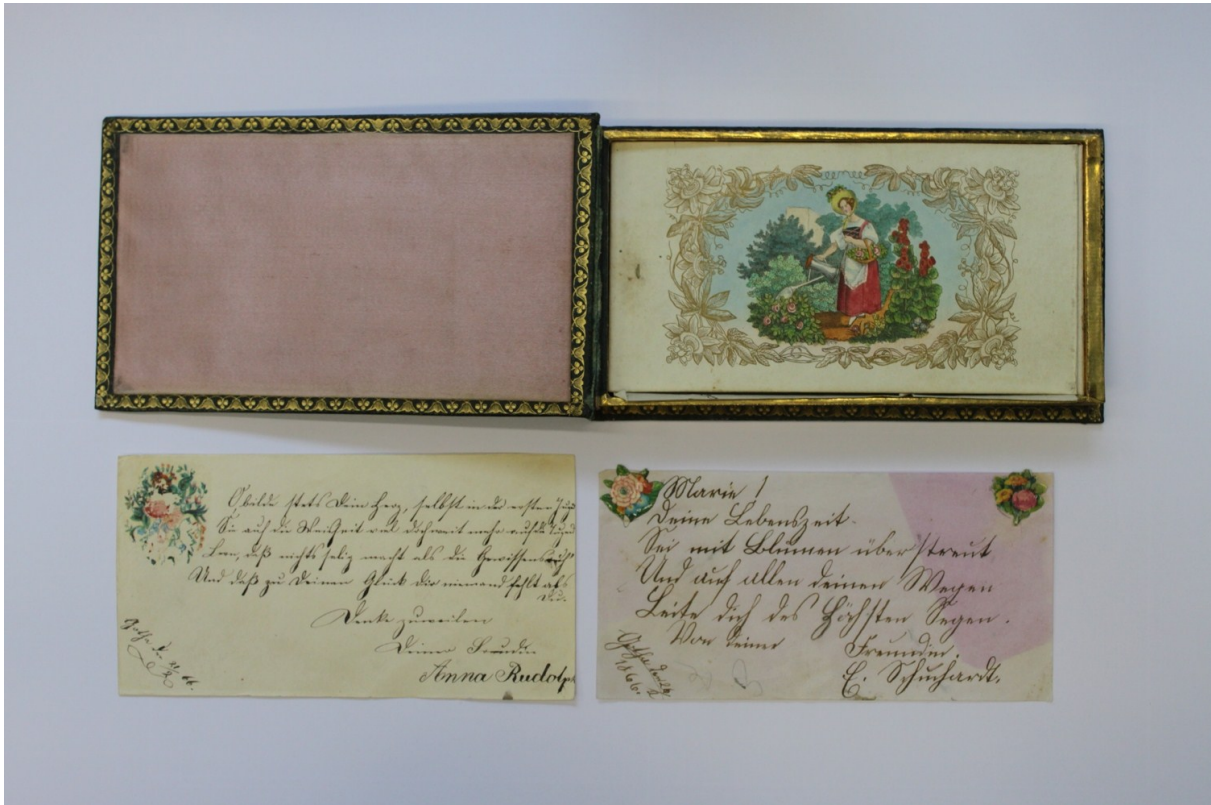 O bilde stets Dein Herz, selbst in der ersten Jug
Sie auf die Weisheit viel doch weit mehr auf die Tugend
Lern, daß nichts selig macht als die Gewissensruh
Und daß zu Deinem Glück dir niemand fehlt als
Du.
Denke zuweilen
Deiner Freundin
Anna Rudolph
Gotha d.
66.
Marie!
Deine Lebenszeit
Sei mit Blumen überstreut
Und auf allen deinen Wegen
Leite dich des Höchsten Segen.
Von deiner Freundin.
E. Schuchardt.
Gotha
1866.